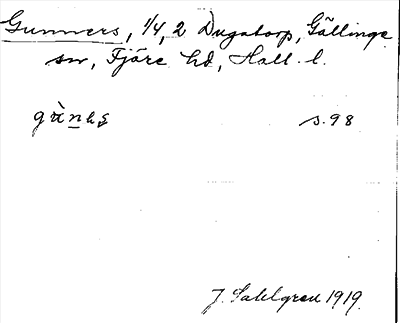 Gunners, 1/4, 2 Dugatorp, Gällinge
sn, Fjäre hd, Hall. l.
s. 98
J. Sahlgren 1919.